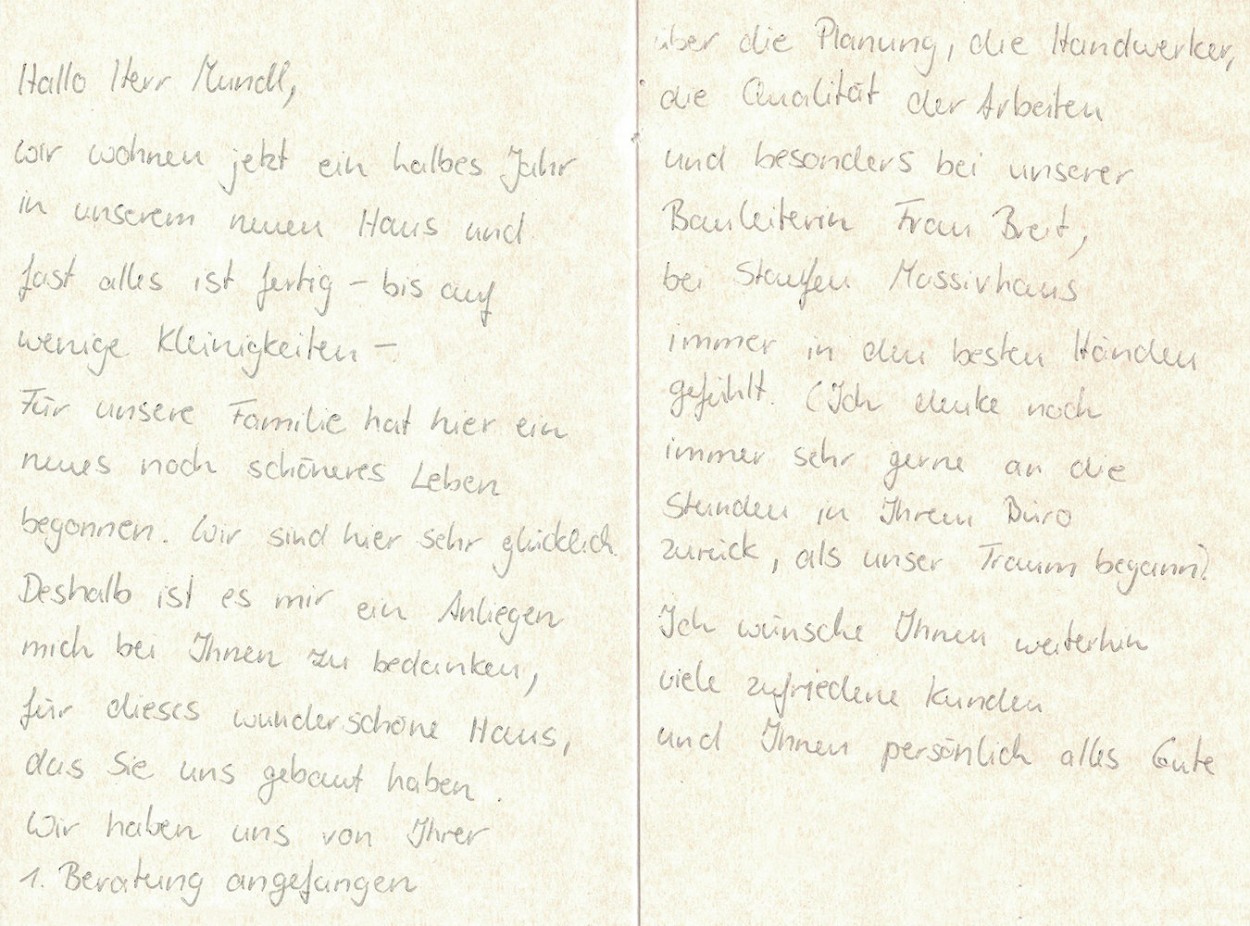 Hallo Herr Mundl,
wir wohnen jetzt ein halbes Jahr
in unserem neuen Haus und
fast alles ist fertig – bis auf
wenige Kleinigkeiten –
Für unsere Familie hat hier ein
neues noch schöneres Leben
begonnen. Wir sind hier sehr glücklich.
Deshalb ist es mir ein Anliegen
mich bei Ihnen zu bedanken,
für dieses wunderschöne Haus,
das Sie uns gebaut haben.
Wir haben uns von Ihrer
1. Beratung angefangen
über die Planung, die Handwerker,
die Qualität der Arbeiten
und besonders bei unserer
Bauleiterin Frau Breit,
bei Staufen Massivhaus
immer in den besten Händen
gefühlt. (Ich denke noch
immer sehr gerne an die
Stunden in Ihrem Büro
zurück, als unser Traum begann).
Ich wünsche Ihnen weiterhin
viele zufriedene Kunden
und Ihnen persönlich alles Gute